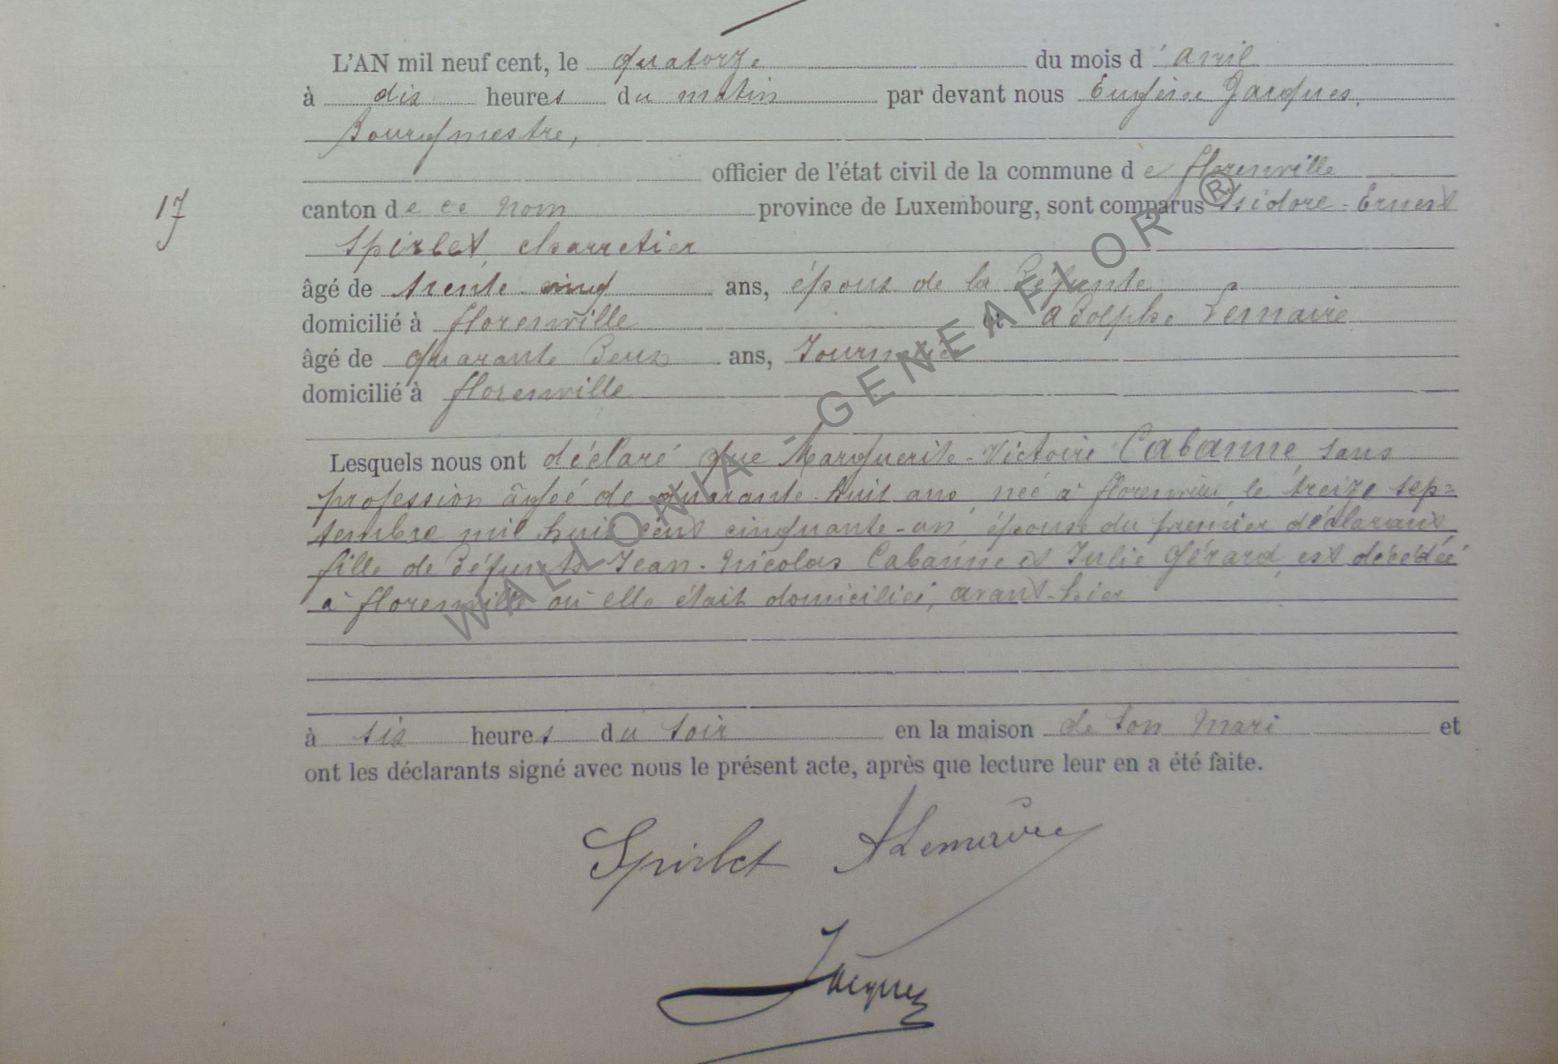 L'AN mil neuf cent, le quatorze du mois d'avril
à dix heures du matin par devant nous Eugène Jacques,
Bourgmestre,
officier de l'état civil de la commune de florenville
17
canton de ce nom province de Luxembourg, sont comparus Isidore-Ernest
Spirlet, charretier
âgé de trente-cinq ans, époux de la Défunte
domicilié à florenville et Adolphe Lemaire
âgé de quarante Deux ans, Journalier
domicilié à florenville
Lesquels nous ont déclaré que Marguerite-Victoire Cabanne, sans
profession âgée de quarante-huit ans, née à florenville, le treize sep=
tembre mil huit cent cinquante-un, épouse du premier déclarant
fille de défunts Jean-Nicolas Cabanne et Julie Gérard, est décédée
à florenville où elle était domiciliée, avant-hier
à six heures du soir en la maison de son mari et
ont les déclarants signé avec nous le présent acte, après que lecture leur en a été faite.
Spirlet ALemaire
Jacques
WALLONIA - GENEAFLOR ®